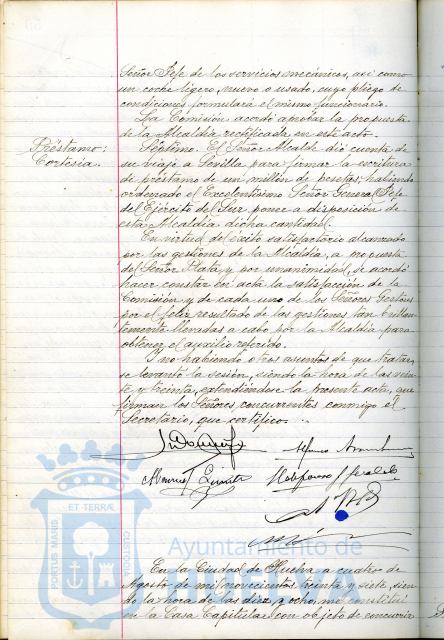 Señor Jefe de los servicios mecánicos, así como
un coche ligero, nuevo o usado, cuyo pliego de
condiciones formulará el mismo funcionario.
La Comisión acordó aprobar la propuesta
de la Alcaldía rectificada en este acto.
Préstamo:
Cortesía.
Séptimo. El Señor Alcalde dió cuenta de
su viaje a Sevilla para firmar la escritura
de préstamo de un millón de pesetas, habiendo
ordenado el Excelentísimo Señor General Jefe
del Ejército del Sur poner a disposición de
esta Alcaldía dicha cantidad.
En virtud del éxito satisfactorio alcanzado
por las gestiones de la Alcaldía, a propuesta
del Señor Plata, y por unanimidad, se acordó
hacer constar en acta la satisfacción de la
Comisión y de cada uno de los Señores Gestores
por el feliz resultado de las gestiones tan brillan-
temente llevadas a cabo por la Alcaldía para
obtener el auxilio referido.
Y no habiendo otros asuntos de que tratar,
se levantó la sesión, siendo la hora de las vein-
te y treinta, extendiéndose la presente acta, que
firman los Señores concurrentes conmigo el
Secretario, que certifico.
PORTUS MARIS ET TERRÆ CUSTODIA
Ayuntamiento de
HUELVA
En la Ciudad de Huelva, a cuatro de
Agosto de mil novecientos treinta y siete, sien-
do la hora de las diez y ocho, me constituí
en la Casa Capitular con objeto de concurrir